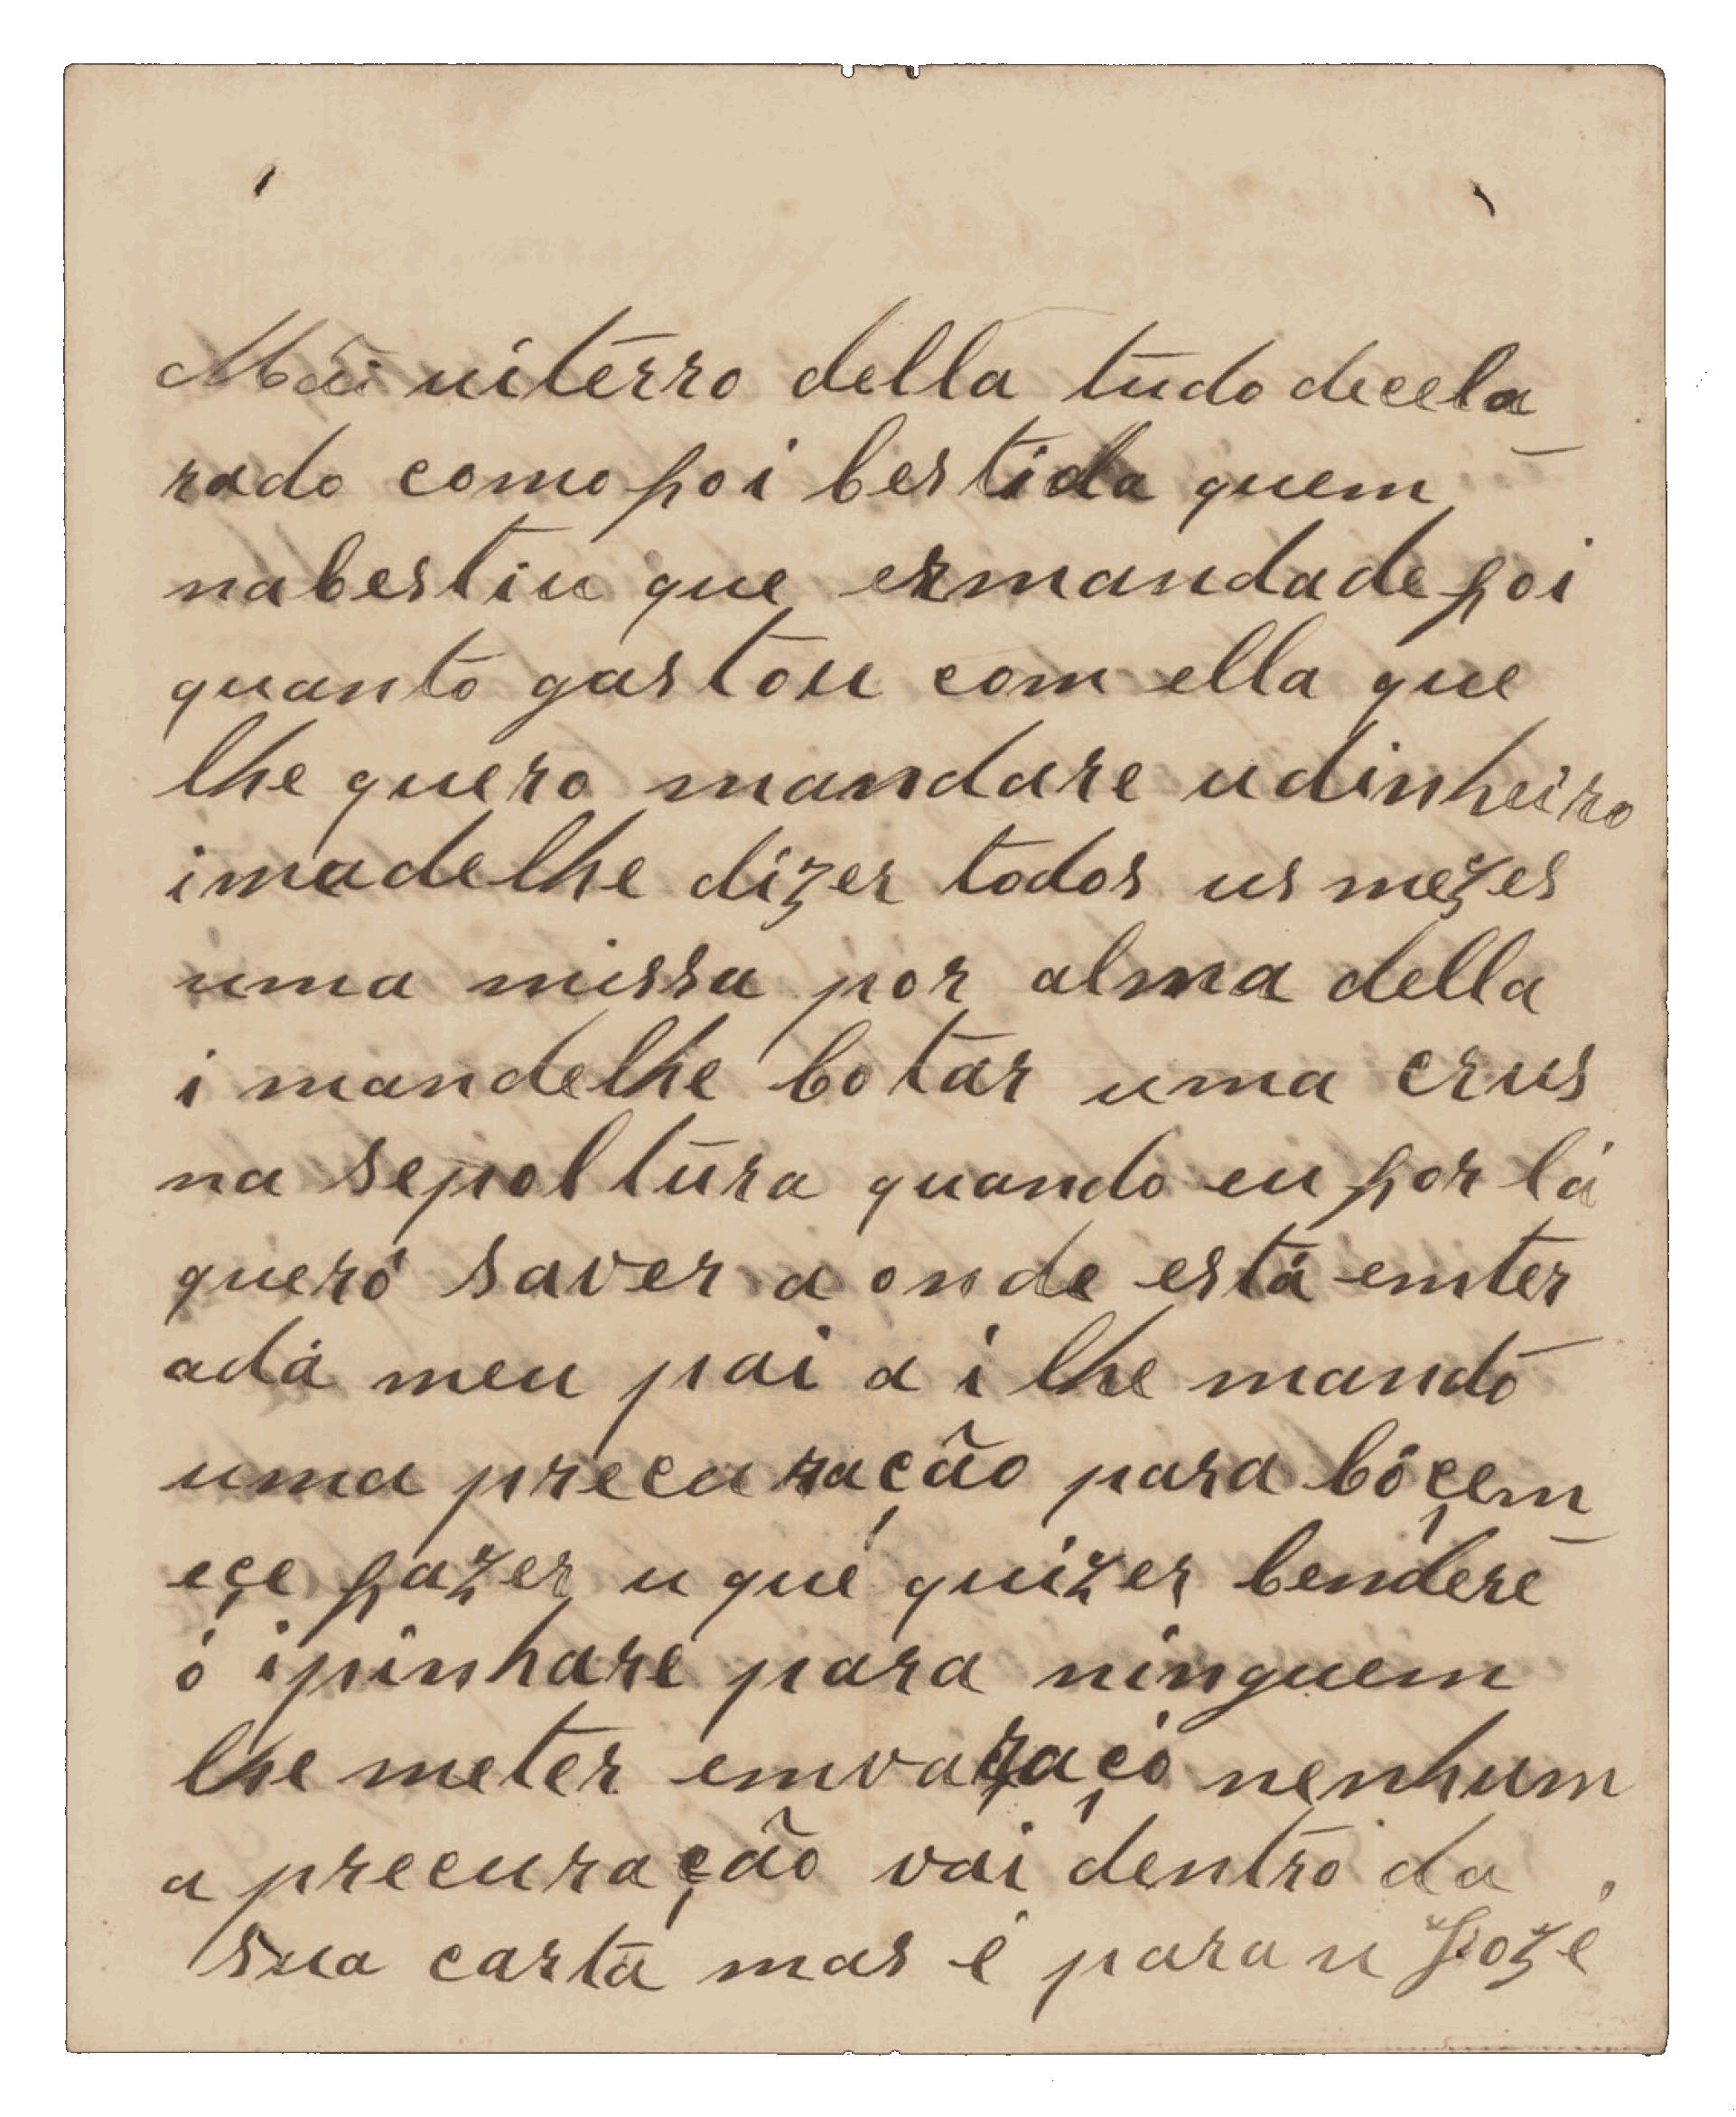 Mãi uitérro della tudo decela
rado como foi bestida quem
nabestiu que ermandade foi
quanto gastou com ella que
lhe quero mandare udinheiro
imadelhe dizer todos us mezes
uma missa por alma della
i mandelhe botar uma crus
na sepoltura quando eu for lá
queró saver a onde está emter
adá meu pai a i lhe mando
uma precuração para bóçem
eçe fazer u qué quizer benderé
ó ipinharé para ninguem
lhe meter emvaraçó nenhum
a precuração vai dentro da
sua carta mas é para u Jozé